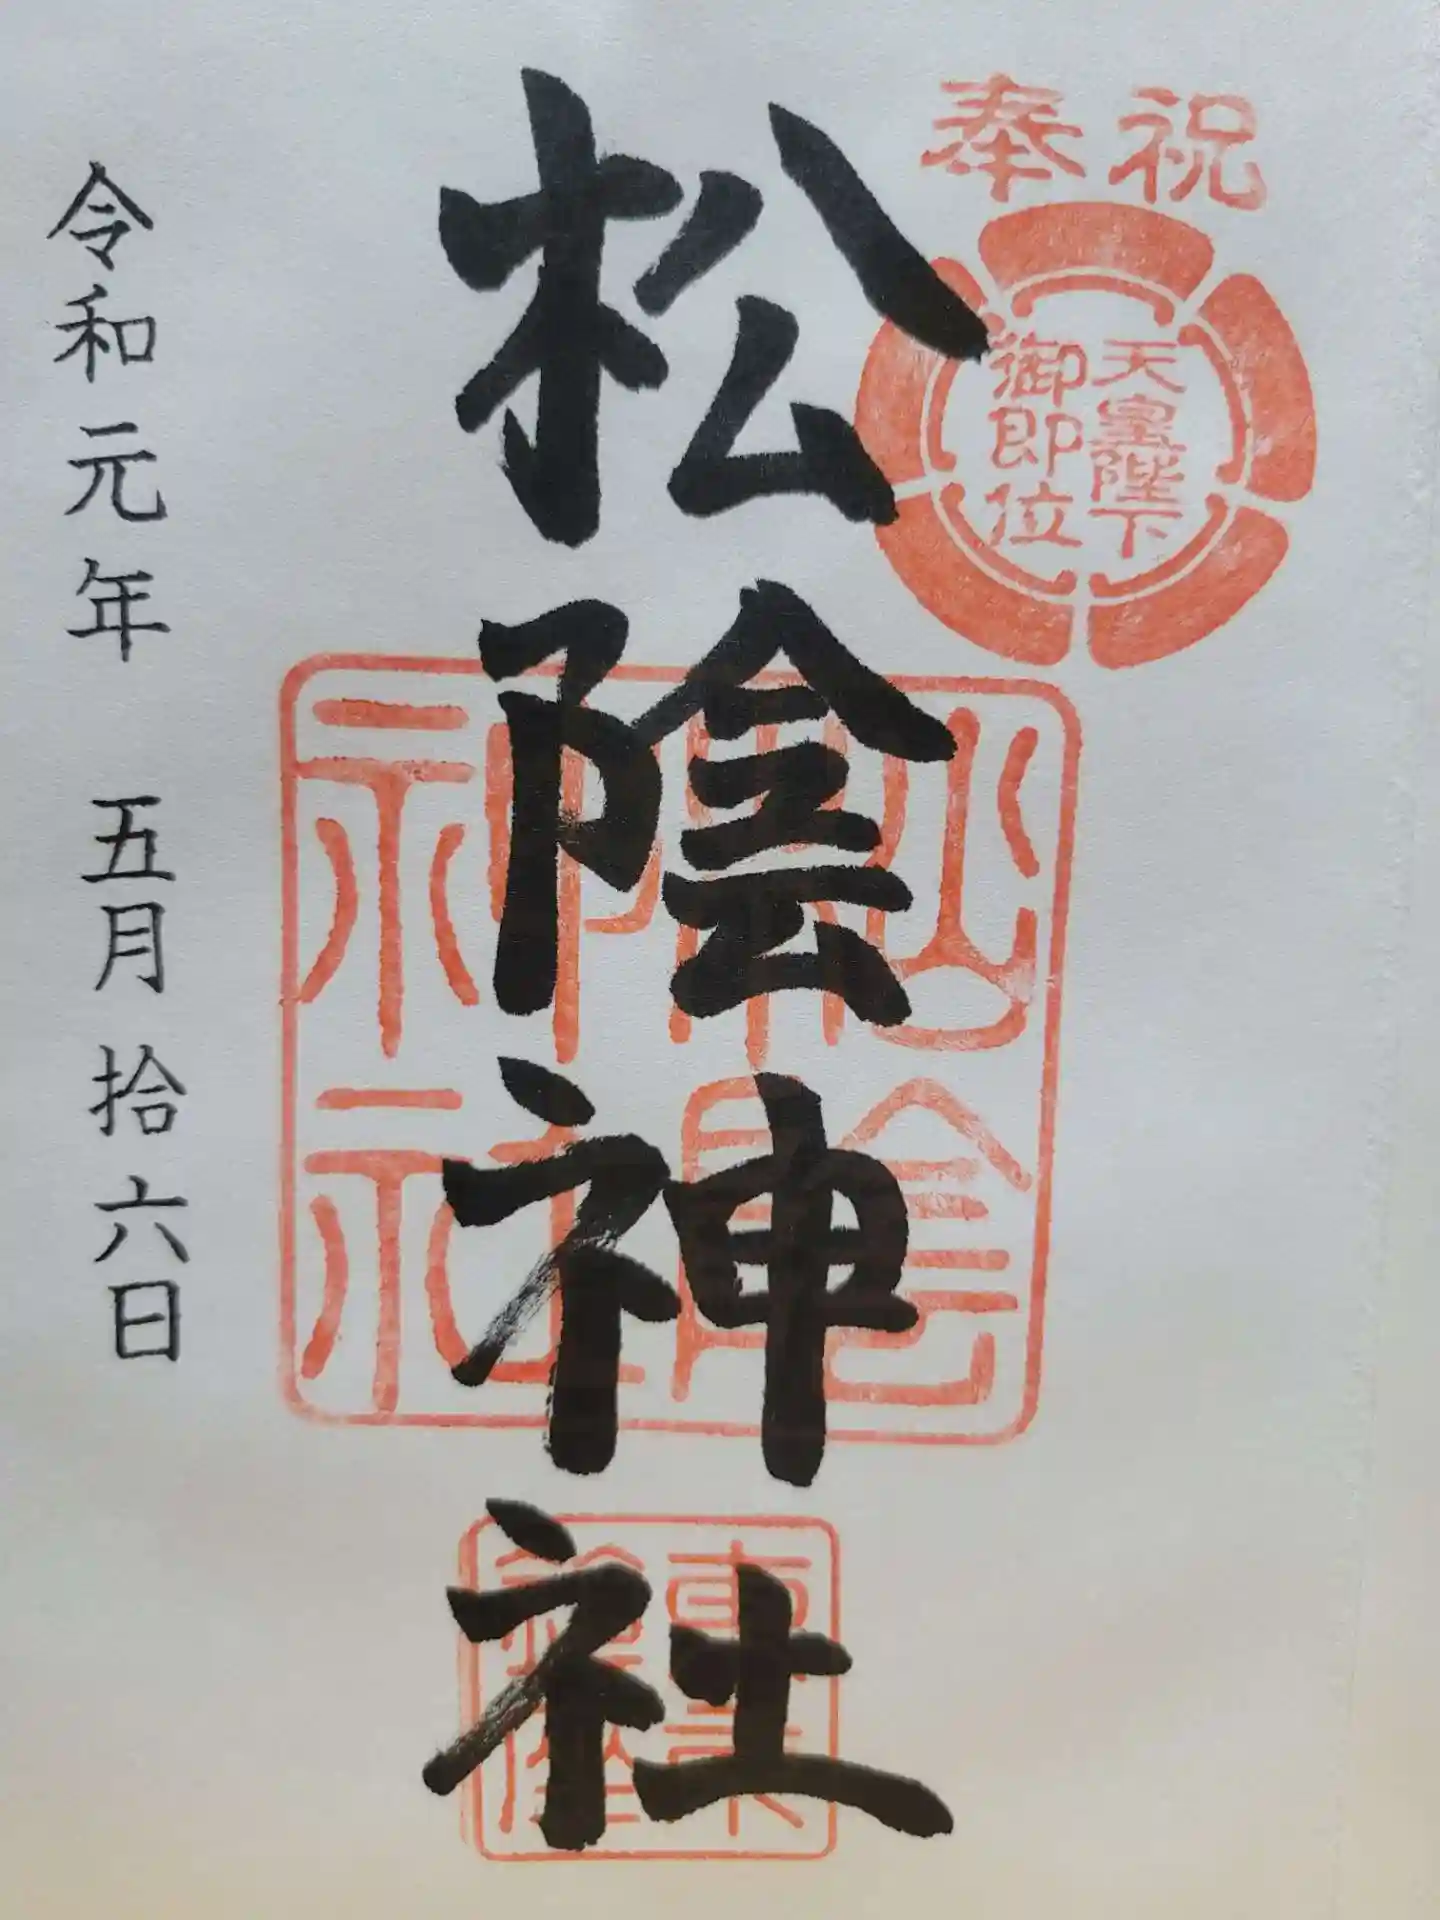 奉祝
天皇陛下
御即位
松陰神社
松陰
神社
令和元年 五月拾六日